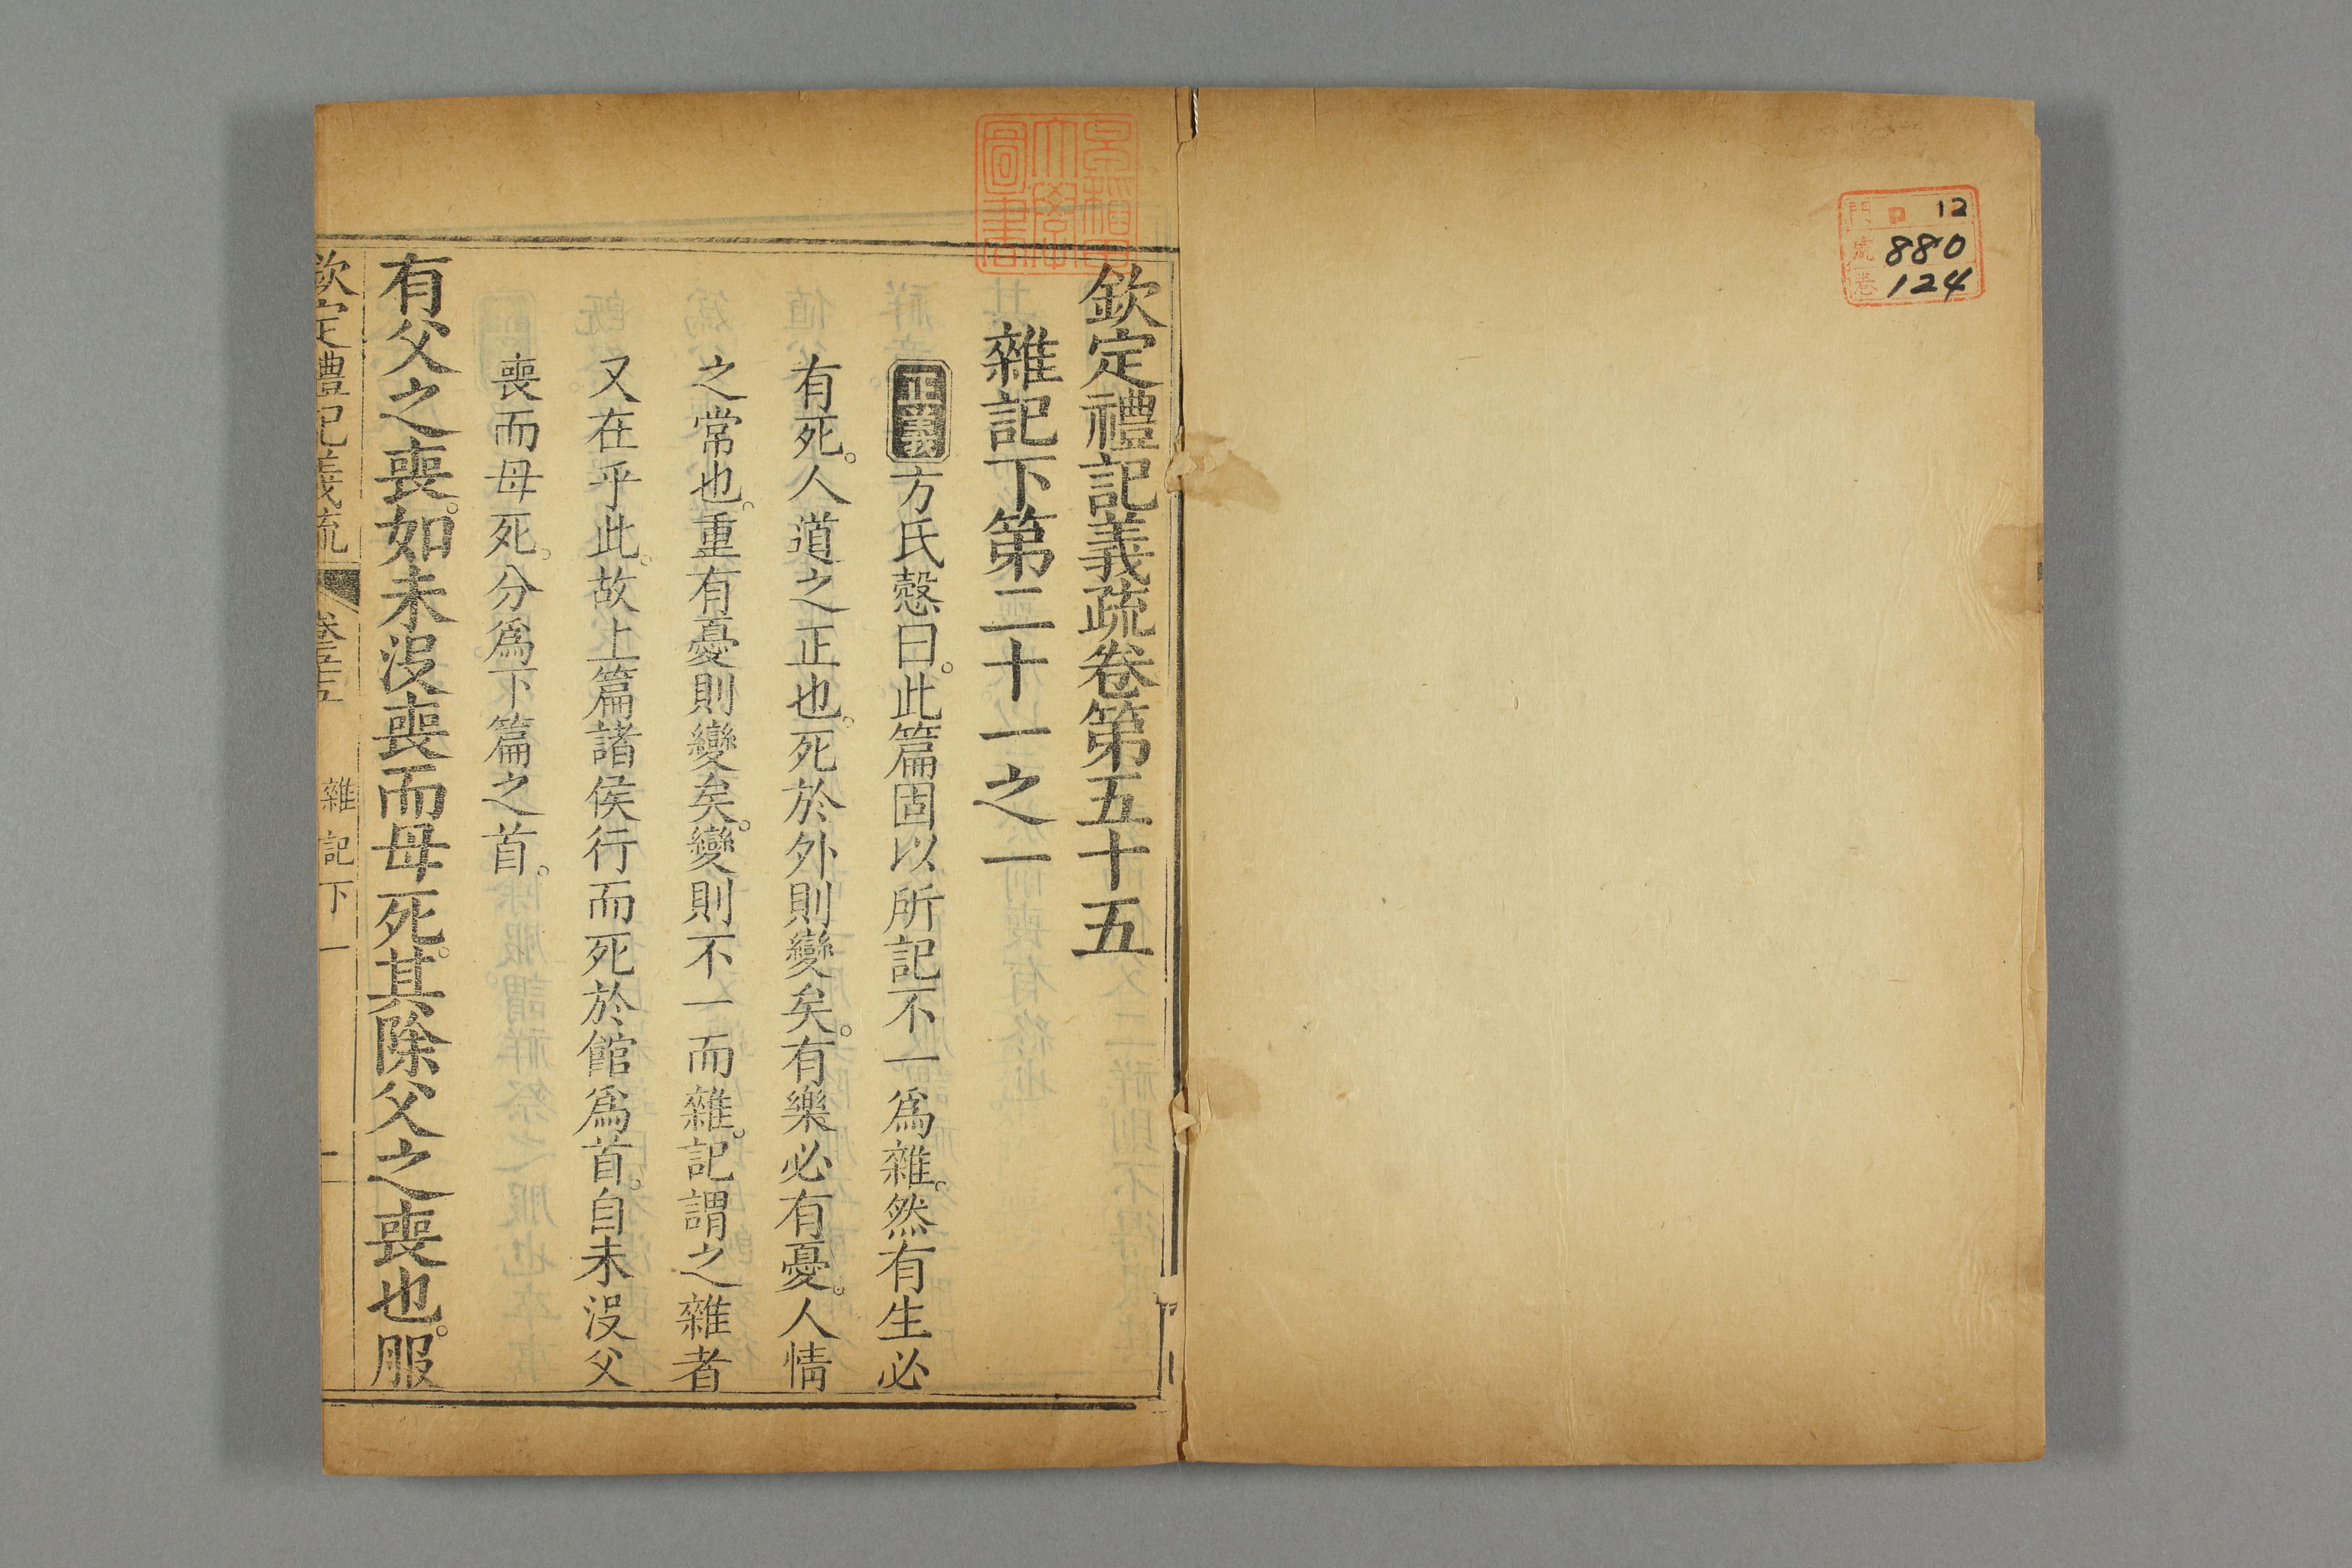 12
門
880
號
124
卷
早稲田
大學
圖書
欽定禮記義疏卷第五十五
雜記下第二十一之一
正義方氏慤曰。此篇固以所記不一爲雜。然有生必
有死。人道之正也。死於外則變矣。有樂必有憂。人情
之常也。重有憂則變矣。變則不一而雜。記謂之雜者
又在乎此。故上篇諸侯行而死於館爲首。自未沒父
喪而母死。分爲下篇之首。
有父之喪。如未沒喪而母死。其除父之喪也。服
欽定禮記義疏 卷五十五 雜記下一 一